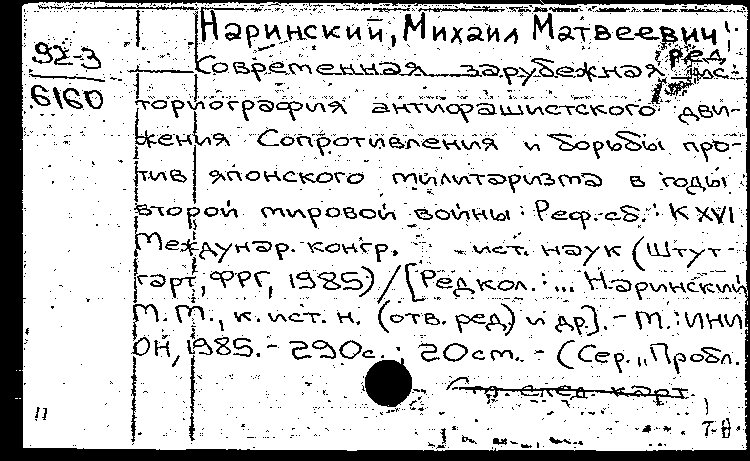 Наринский, Михаил Матвеевич,
ред.
92-3
6160
Современная зарубежная ис-
ториография антифашистского дви-
жения Сопротивления и борьбы про-
тив японского милитаризма в годы
второй мировой войны : Реф. сб. : К XVI
Междунар. конгр. ист. наук (Штут-
гарт, ФРГ, 1985) / [Редкол.: ... Наринский
М. М., к. ист. н. (отв. ред.) и др.]. - М.: ИНИ
ОН, 1985. - 290с. ; 20см. - (Сер. „Пробл.
См. след. карт.
11
Т-В